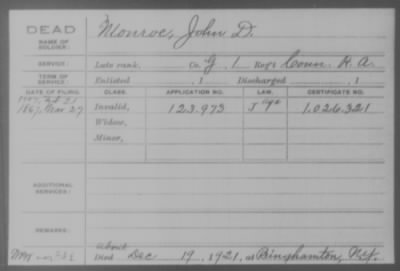 DEAD
NAME OF SOLDIER: Monroe, John D.
SERVICE: Late rank, Co. G, 1 Reg't Conn. H. A.
TERM OF SERVICE: Enlisted , 1 Discharged , 1
DATE OF FILING. CLASS. APPLICATION NO. LAW. CERTIFICATE NO.
Feb 21
1867, Mar 27 Invalid, 123.973 1.026.321
Widow,
Minor,
ADDITIONAL SERVICES:
REMARKS:
about
Died Dec 19, 1921, at Binghamton, N.Y.